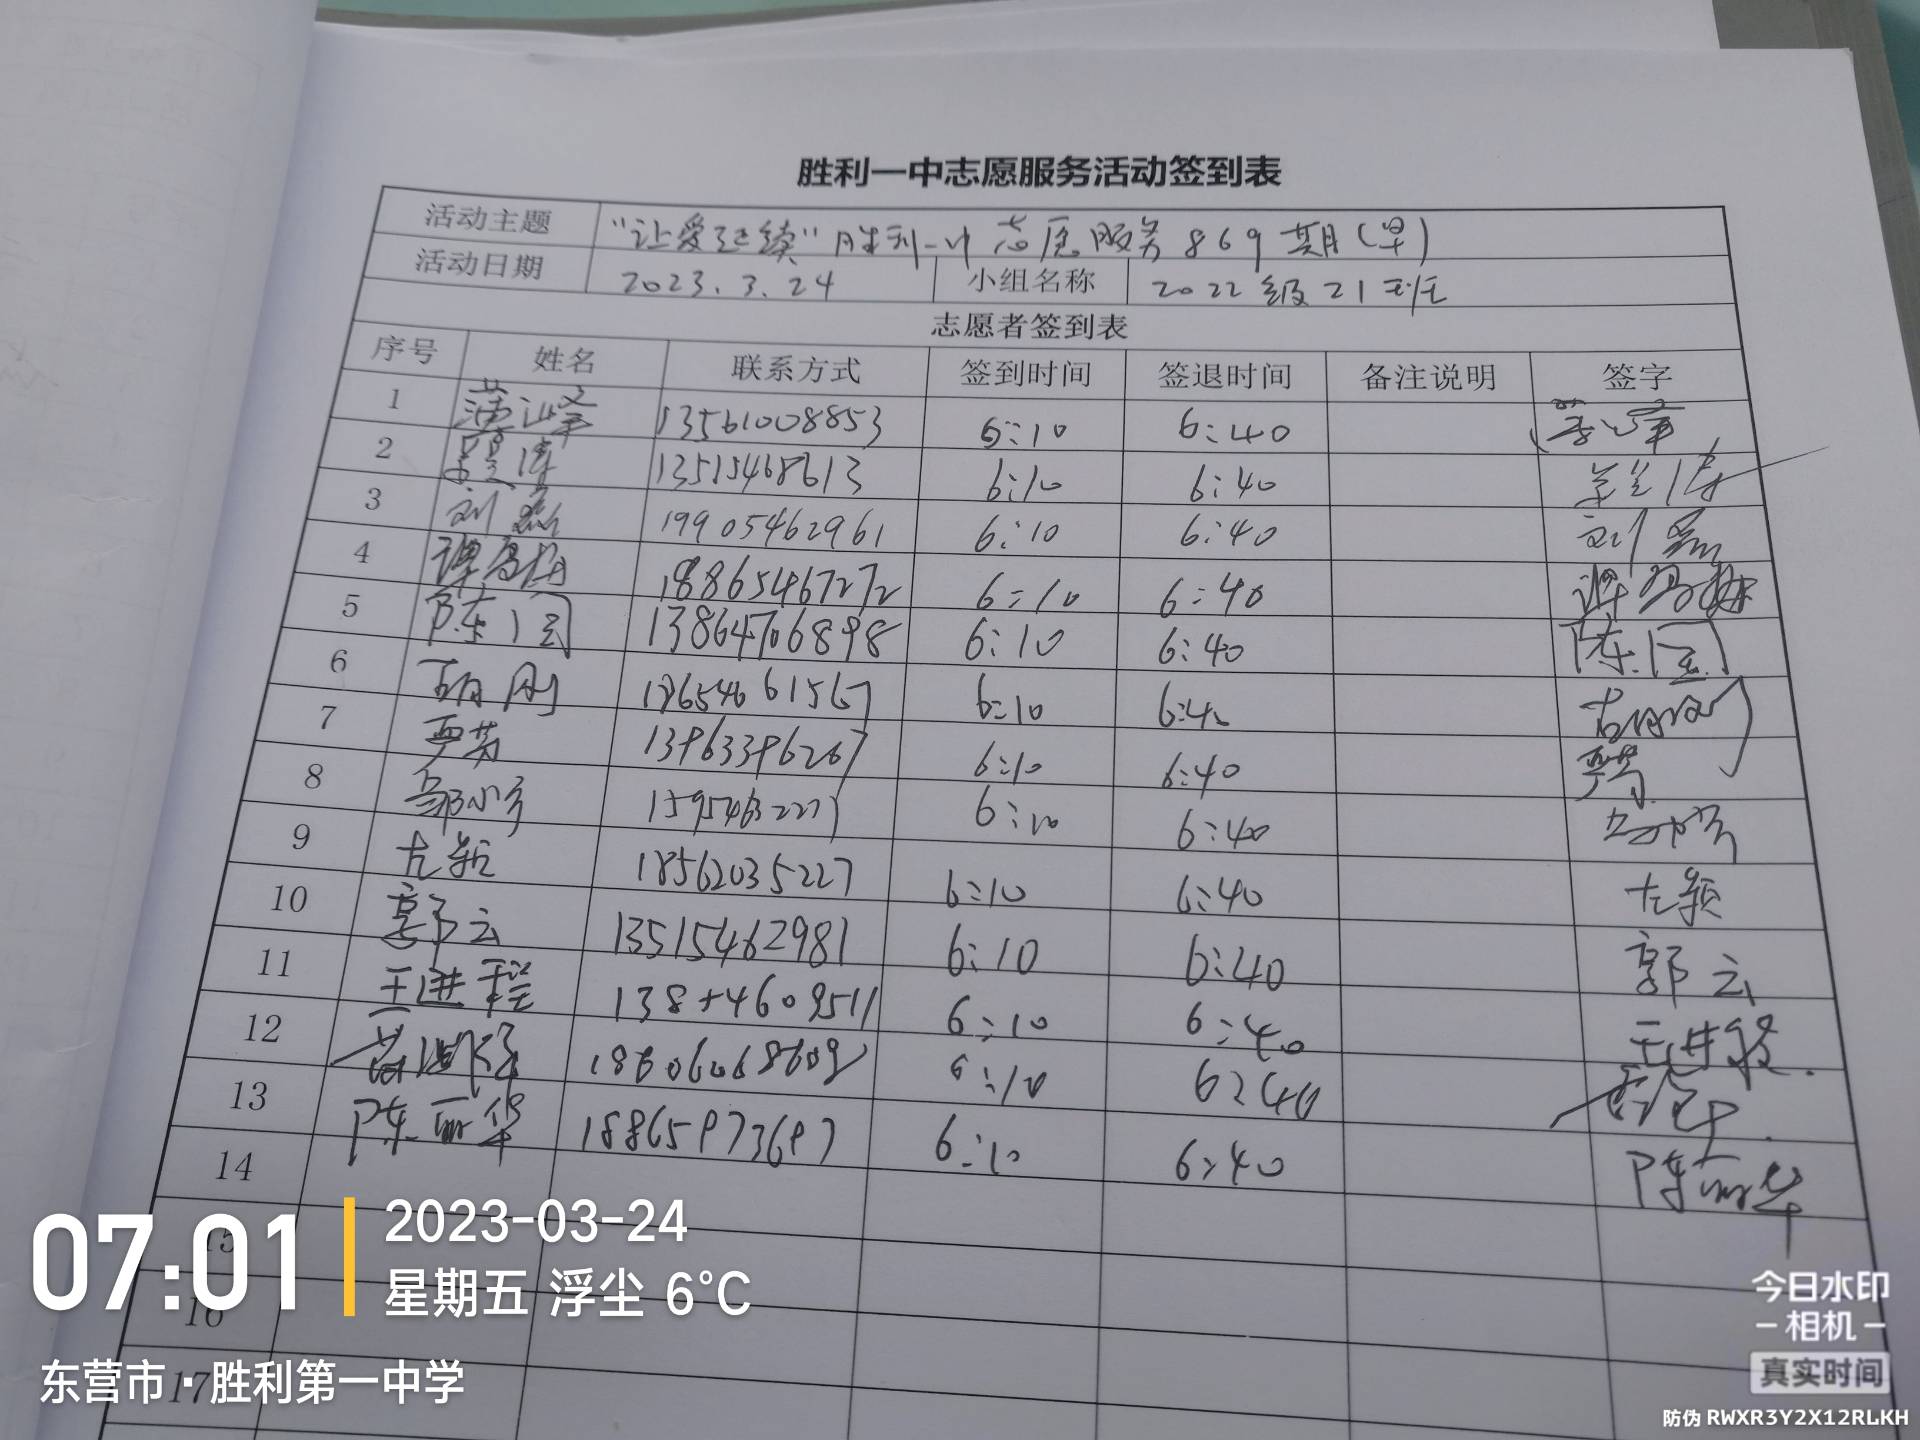 胜利一中志愿服务活动签到表
活动主题 "让爱延续"胜利一中志愿服务869期(早)
活动日期 2023.3.24 小组名称 2022级21班
志愿者签到表
序号 姓名 联系方式 签到时间 签退时间 备注说明 签字
1 13561008853 6:10 6:40
2 13515468613 6:10 6:40
3 刘磊 19905462961 6:10 6:40 刘磊
4 18865467272 6:10 6:40
5 陈 13864706898 6:10 6:40 陈
6 胡刚 18654661567 6:10 6:40 胡刚
7 严芳 13963396267 6:10 6:40 严芳
8 6:10 6:40
9 左颖 18562035227 6:10 6:40 左颖
10 郭云 13515462981 6:10 6:40 郭云
11 王进 6:10 6:40 王进
12 18606068609 6:10 6:40
13 陈丽华 18865973697 6:10 6:40 陈丽华
14
15
16
17
07:01
2023-03-24
星期五 浮尘 6°C
东营市·胜利第一中学
今日水印
-相机-
真实时间
防伪 RWXR3Y2X12RLKH